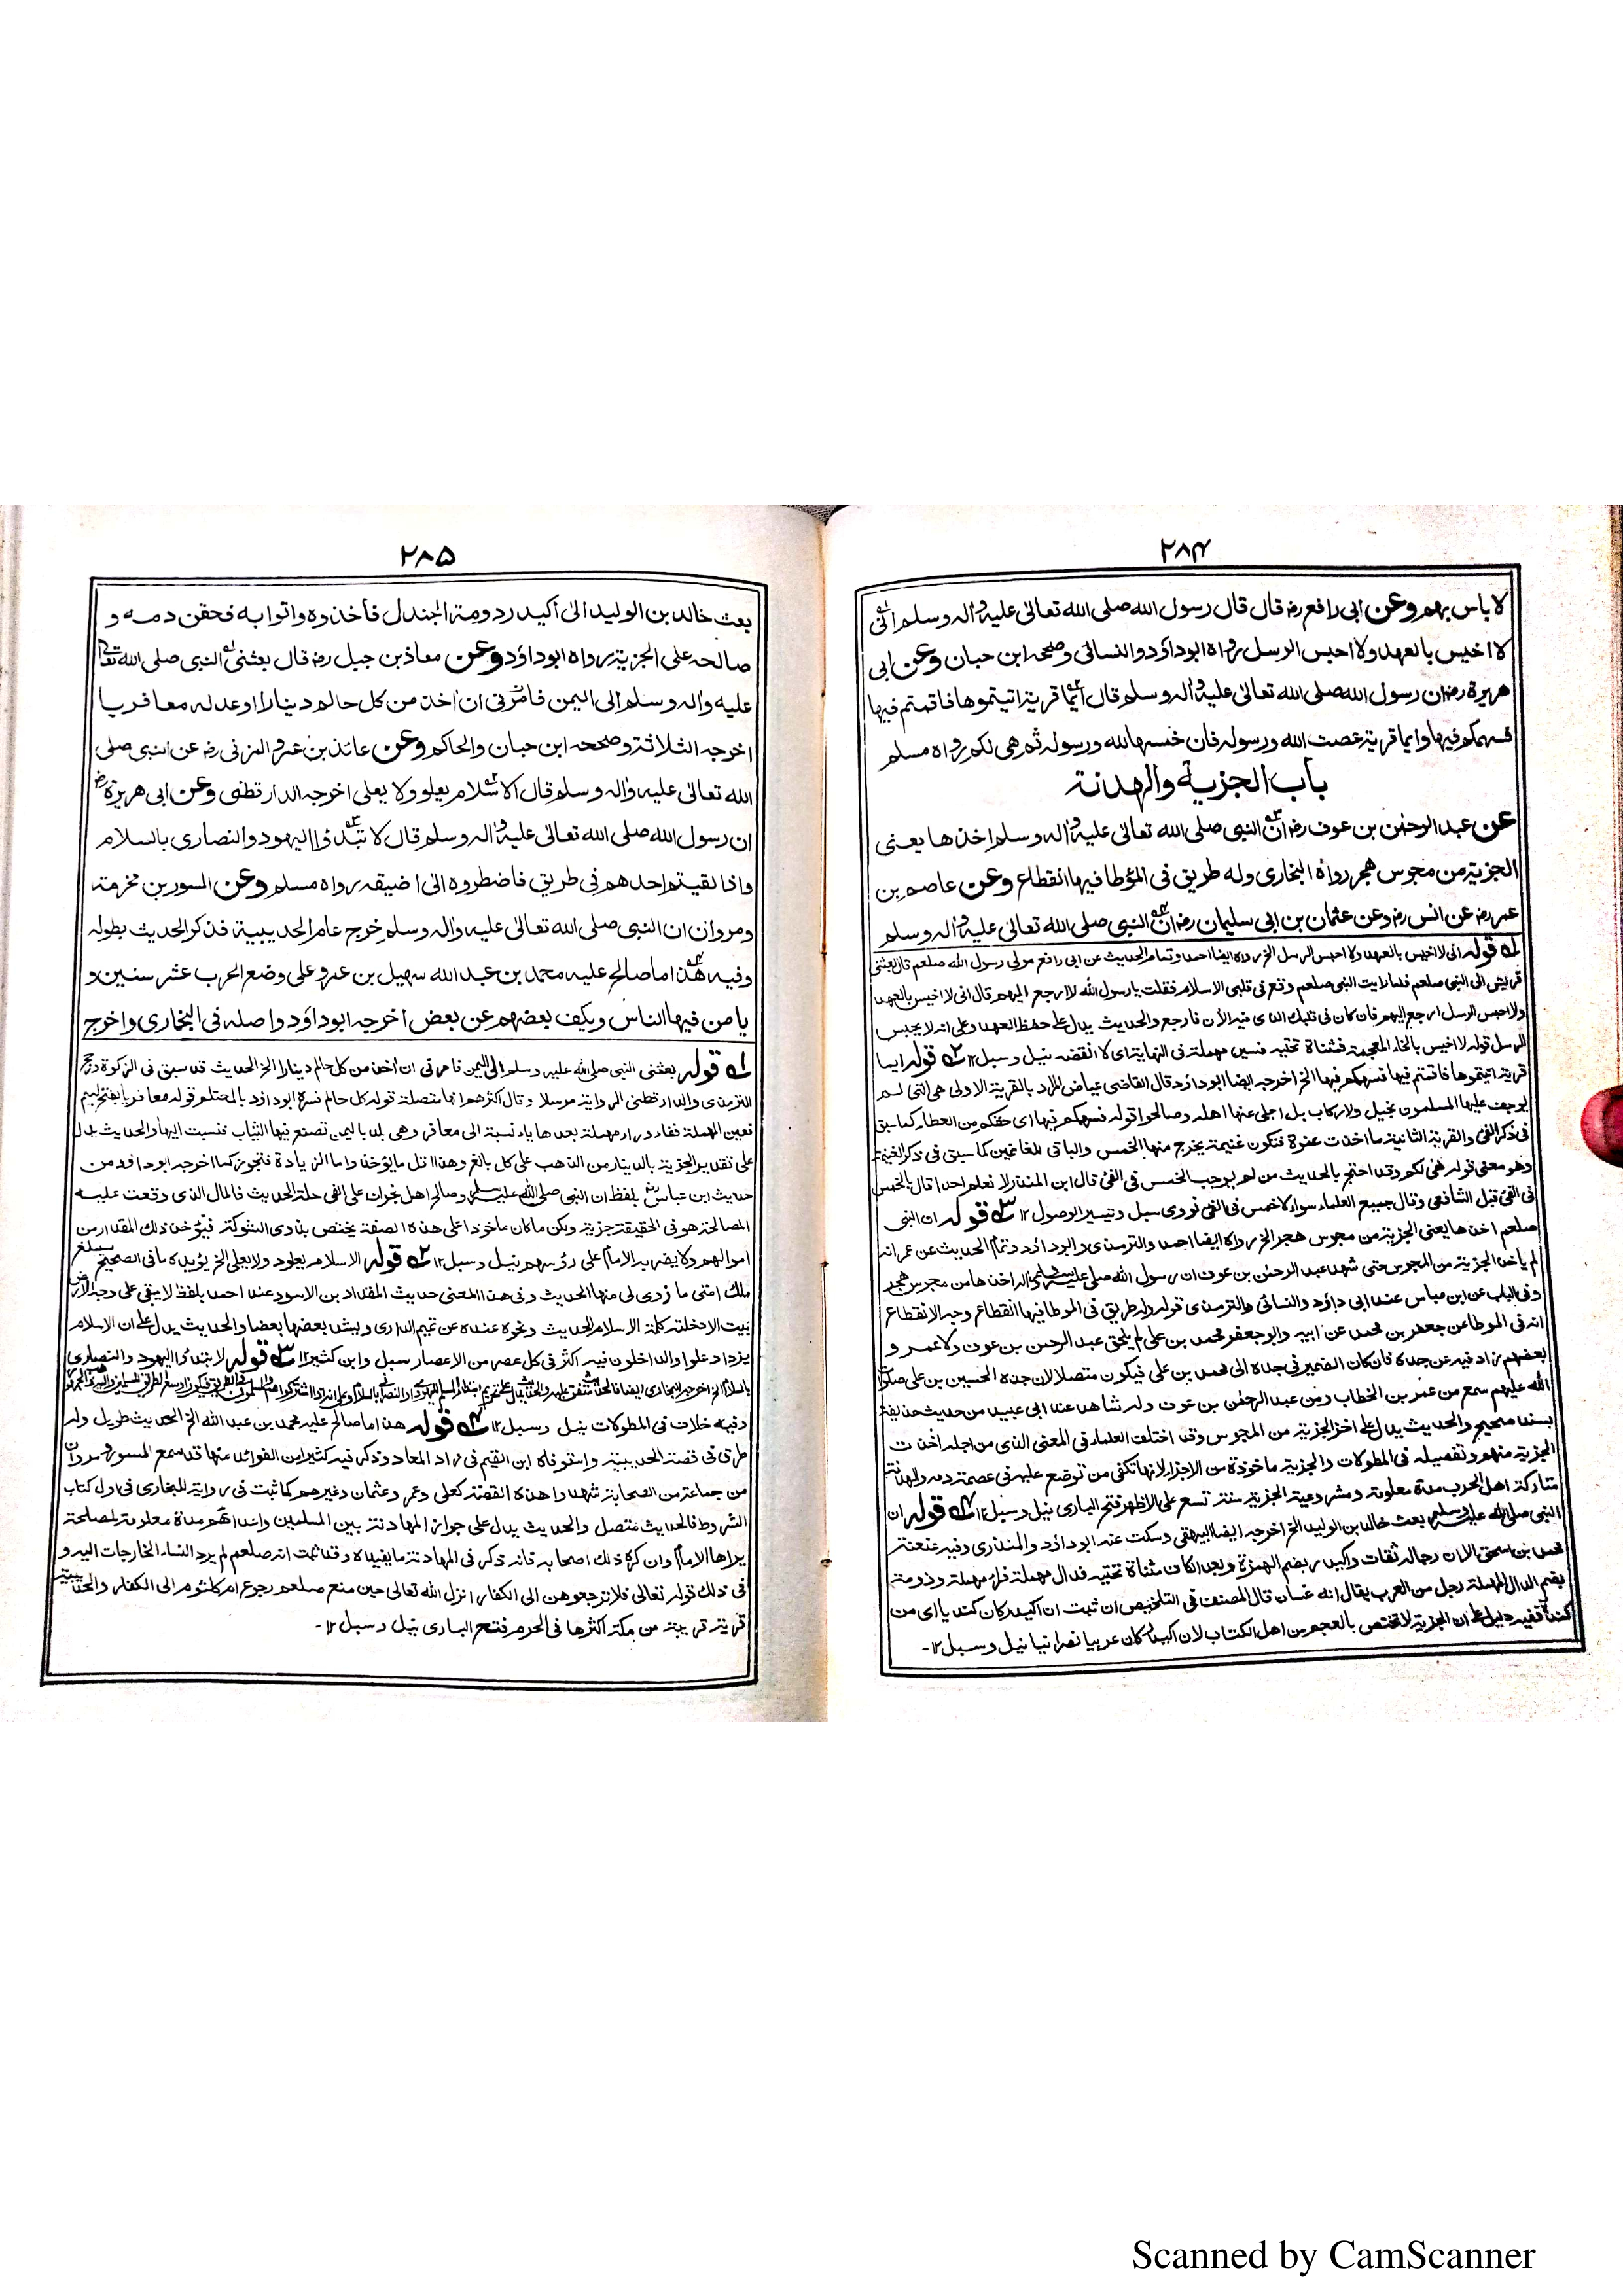 ٢٨٤
لا باس بهم وعن ابى رافع رض قال قال رسول الله صلى الله تعالى عليه واله وسلم انى
لا اخيس بالعهد ولا احبس الرسل رواه ابوداؤد والنسائى وصححه ابن حبان وعن ابى
هريرة رض ان رسول الله صلى الله تعالى عليه واله وسلم قال ايما قرية اتيتموها فاقمتم فيها
فسهمكم فيها وايما قرية عصت الله ورسوله فان خمسها لله ورسوله ثم هى لكم رواه مسلم
باب الجزية والهدنة
عن عبد الرحمن بن عوف رض ان النبى صلى الله تعالى عليه واله وسلم اخذها يعنى
الجزية من مجوس هجر رواه البخارى وله طريق فى المؤطا فيها انقطاع وعن عاصم بن
عمر رض عن انس رض وعن عثمان بن ابى سليمان رض ان النبى صلى الله تعالى عليه واله وسلم
له قوله انى لا اخيس بالعهد ولا احبس الرسل الخ رواه ايضا احمد وتمام الحديث عن ابى رافع مولى رسول الله صلعم قال بعثنى
قريش الى النبى صلعم فلما رايت النبى صلعم وقع فى قلبى الاسلام فقلت يا رسول الله لا ارجع اليهم قال انى لا اخيس بالعهد
ولا احبس الرسل ارجع اليهم فان كان فى قلبك الذى فيه الأن فارجع والحديث يدل على حفظ العهد وعلى انه لا يحبس
الرسل قوله لا اخيس بالخاء المعجمة فمثناة تحتيه فسين مهملة فى النهاية اى لا انقضه نيل وسبل ١٢ قوله ايما
قرية اتيتموها فاقمتم فيها فسهمكم فيها الخ اخرجه ايضا ابوداؤد قال القاضى عياض المراد بالقرية الاولى هى التى لم
يوجف عليها المسلمون بخيل ولا ركاب بل اجلى عنها اهله وصالحوا قوله فسهمكم فيها اى حقكم من العطاء كما سبق
فى ذكر الفئ والقرية الثانية ما اخذت عنوة فتكون غنيمة يخرج منها الخمس والباقى للغانمين كما سبق فى ذكر الغنيمة
وهو معنى قوله هى لكم وقد احتج بالحديث من لم يوجب الخمس فى الفئ قال ابن المنذر لا نعلم احدا قال بالخمس
فى الفئ قبل الشافعى وقال جميع العلماء سواه لا خمس فى الفئ نووى سبل وتيسير الوصول ١٢ قوله ان النبى
صلعم اخذها يعنى الجزية من مجوس هجر الخ رواه ايضا احمد والترمذى وابوداؤد وتمام الحديث عن عمر انه
لم ياخذ الجزية من المجوس حتى شهد عبد الرحمن بن عوف ان رسول الله صلى عليه وسلم اخذها من مجوس هجر
وفى الباب عن ابن عباس عند ابى داؤد والنسائى والترمذى قوله وله طريق فى الموطا فيها انقطاع وجه الانقطاع
انه فى الموطا عن جعفر بن محمد عن ابيه وابو جعفر محمد بن على لم يلحق عبد الرحمن بن عوف ولا عمر و
بعضهم زاد فيه عن جده فان كان الضمير فى جده الى محمد بن على فيكون متصلا لان جده الحسين بن على صلوات
الله عليهم سمع من عمر بن الخطاب ومن عبد الرحمن بن عوف وله شاهد عند ابى عبيد من حديث حذيفة
بسند صحيح والحديث يدل على اخذ الجزية من المجوس وقد اختلف العلماء فى المعنى الذى من اجله اخذت
الجزية منهم وتفصيله فى المطولات والجزية ماخوذة من الاجزاء لانها تكفى من توضع عليه فى عصمة دمه والهدنة
متاركة اهل الحرب مدة معلومة ومشروعية الجزية سنة تسع على الاظهر فتح البارى نيل وسبل ١٢ قوله ان
النبى صلى الله عليه وسلم بعث خالد بن الوليد الخ اخرجه ايضا البيهقى وسكت عنه ابوداؤد والمنذرى وفيه عنعنة
محمد بن اسحق الا ان رجاله ثقات واكيدر بضم الهمزة وبعد الكاف مثناة تحتيه فدال مهملة فراء مهملة ودومة
بضم الدال المهملة رجل من العرب يقال انه غسان قال المصنف فى التلخيص ان ثبت ان اكيدر كان كنديا اى من
كندة ففيه دليل على ان الجزية لا تختص بالعجم من اهل الكتاب لان اكيدر كان عربيا نصرانيا نيل وسبل ١٢-
٢٨٥
بعث خالد بن الوليد الى أكيدر دومة الجندل فأخذوه واتوا به فحقن دمه و
صالحه على الجزية رواه ابوداؤد وعن معاذ بن جبل رض قال بعثنى النبى صلى الله تعالى
عليه واله وسلم الى اليمن فامرنى ان اخذ من كل حالم دينارا او عدله معافريا
اخرجه الثلاثة وصححه ابن حبان والحاكم وعن عائذ بن عمرو المزنى رض عن النبى صلى
الله تعالى عليه واله وسلم قال الاسلام يعلو ولا يعلى اخرجه الدارقطنى وعن ابى هريرة رض
ان رسول الله صلى الله تعالى عليه واله وسلم قال لا تبدؤا اليهود والنصارى بالسلام
واذا لقيتم احدهم فى طريق فاضطروه الى اضيقه رواه مسلم وعن المسور بن مخرمة
ومروان ان النبى صلى الله تعالى عليه واله وسلم خرج عام الحديبية فذكر الحديث بطوله
وفيه هذا ما صالح عليه محمد بن عبد الله سهيل بن عمرو على وضع الحرب عشر سنين و
يامن فيها الناس ويكف بعضهم عن بعض اخرجه ابوداؤد واصله فى البخارى واخرج
له قوله بعثنى النبى صلى الله عليه وسلم الى اليمن فامرنى ان اخذ من كل حالم دينارا الخ الحديث قد سبق فى الزكوة
الترمذى والدارقطنى الرواية مرسلا وقال اكثرهم انها متصلة قوله كل حالم فسره ابوداؤد بالمحتلم قوله معافريا بفتح الميم
فعين المهملة ففاء وراء مهملة بعدها ياء نسبة الى معافر وهى بلد باليمن تصنع فيها الثياب فنسبت اليها والحديث يدل
على تقدير الجزية بالدينار من الذهب على كل بالغ وهذا اقل ما يؤخذ واما الزيادة فتجوز كما اخرجه ابوداؤد من
حديث ابن عباس رض بلفظ ان النبى صلى الله عليه وسلم صالح اهل نجران على الفى حلة الحديث فالمال الذى وقعت عليه
المصالحة هو فى الحقيقة جزية ولكن ما كان ماخوذا على هذه الصفة يختص بذوى الشوكة فيؤخذ ذلك المقدار من
اموالهم ولا يضربه الامام على رؤسهم نيل وسبل ١٢ قوله الاسلام يعلو ولا يعلى الخ يؤيده ما فى الصحيح سيبلغ
ملك امتى ما زوى لى منها الحديث وفى هذا المعنى حديث المقداد بن الاسود عند احمد بلفظ لا يبقى على وجه الارض
بيت الا دخلته كلمة الاسلام الحديث ونحوه عنده عن تميم الدارى ويشد بعضها بعضا والحديث يدل على ان الاسلام
يزداد علوا والداخلون فيه اكثر فى كل عصر من الاعصار سبل وابن كثير ١٢ قوله لا تبدؤا اليهود والنصارى
بالسلام الخ اخرجه البخارى ايضا فالحديث متفق عليه والحديث يدل على تحريم ابتداء المسلم لليهود والنصارى بالسلام
وفيه خلاف فى المطولات نيل وسبل ١٢ قوله هذا ما صالح عليه محمد بن عبد الله الخ الحديث طويل وله
طرق فى قصة الحديبية واستوفاه ابن القيم فى زاد المعاد وذكر فيه كثيرا من الفوائد عنها قد سمع المسور ومروان
من جماعة من الصحابة شهدوا هذه القصة كعلى وعمر وعثمان وغيرهم كما ثبت فى رواية للبخارى فى اول كتاب
الشروط فالحديث متصل والحديث يدل على جواز المهادنة بين المسلمين واعدائهم مدة معلومة لمصلحة
يراها الامام وان كره ذلك اصحابه فانه ذكر فى المهادنة ما يفيده وقد ثبت انه صلعم لم يرد النساء الخارجات اليه و
فى ذلك قوله تعالى فلا ترجعوهن الى الكفار انزل الله تعالى حين منع صلعم رجوع ام كلثوم الى الكفار والحديبية
قرية قريبة من مكة اكثرها فى الحرم فتح البارى نيل وسبل ١٢-
Scanned by CamScanner